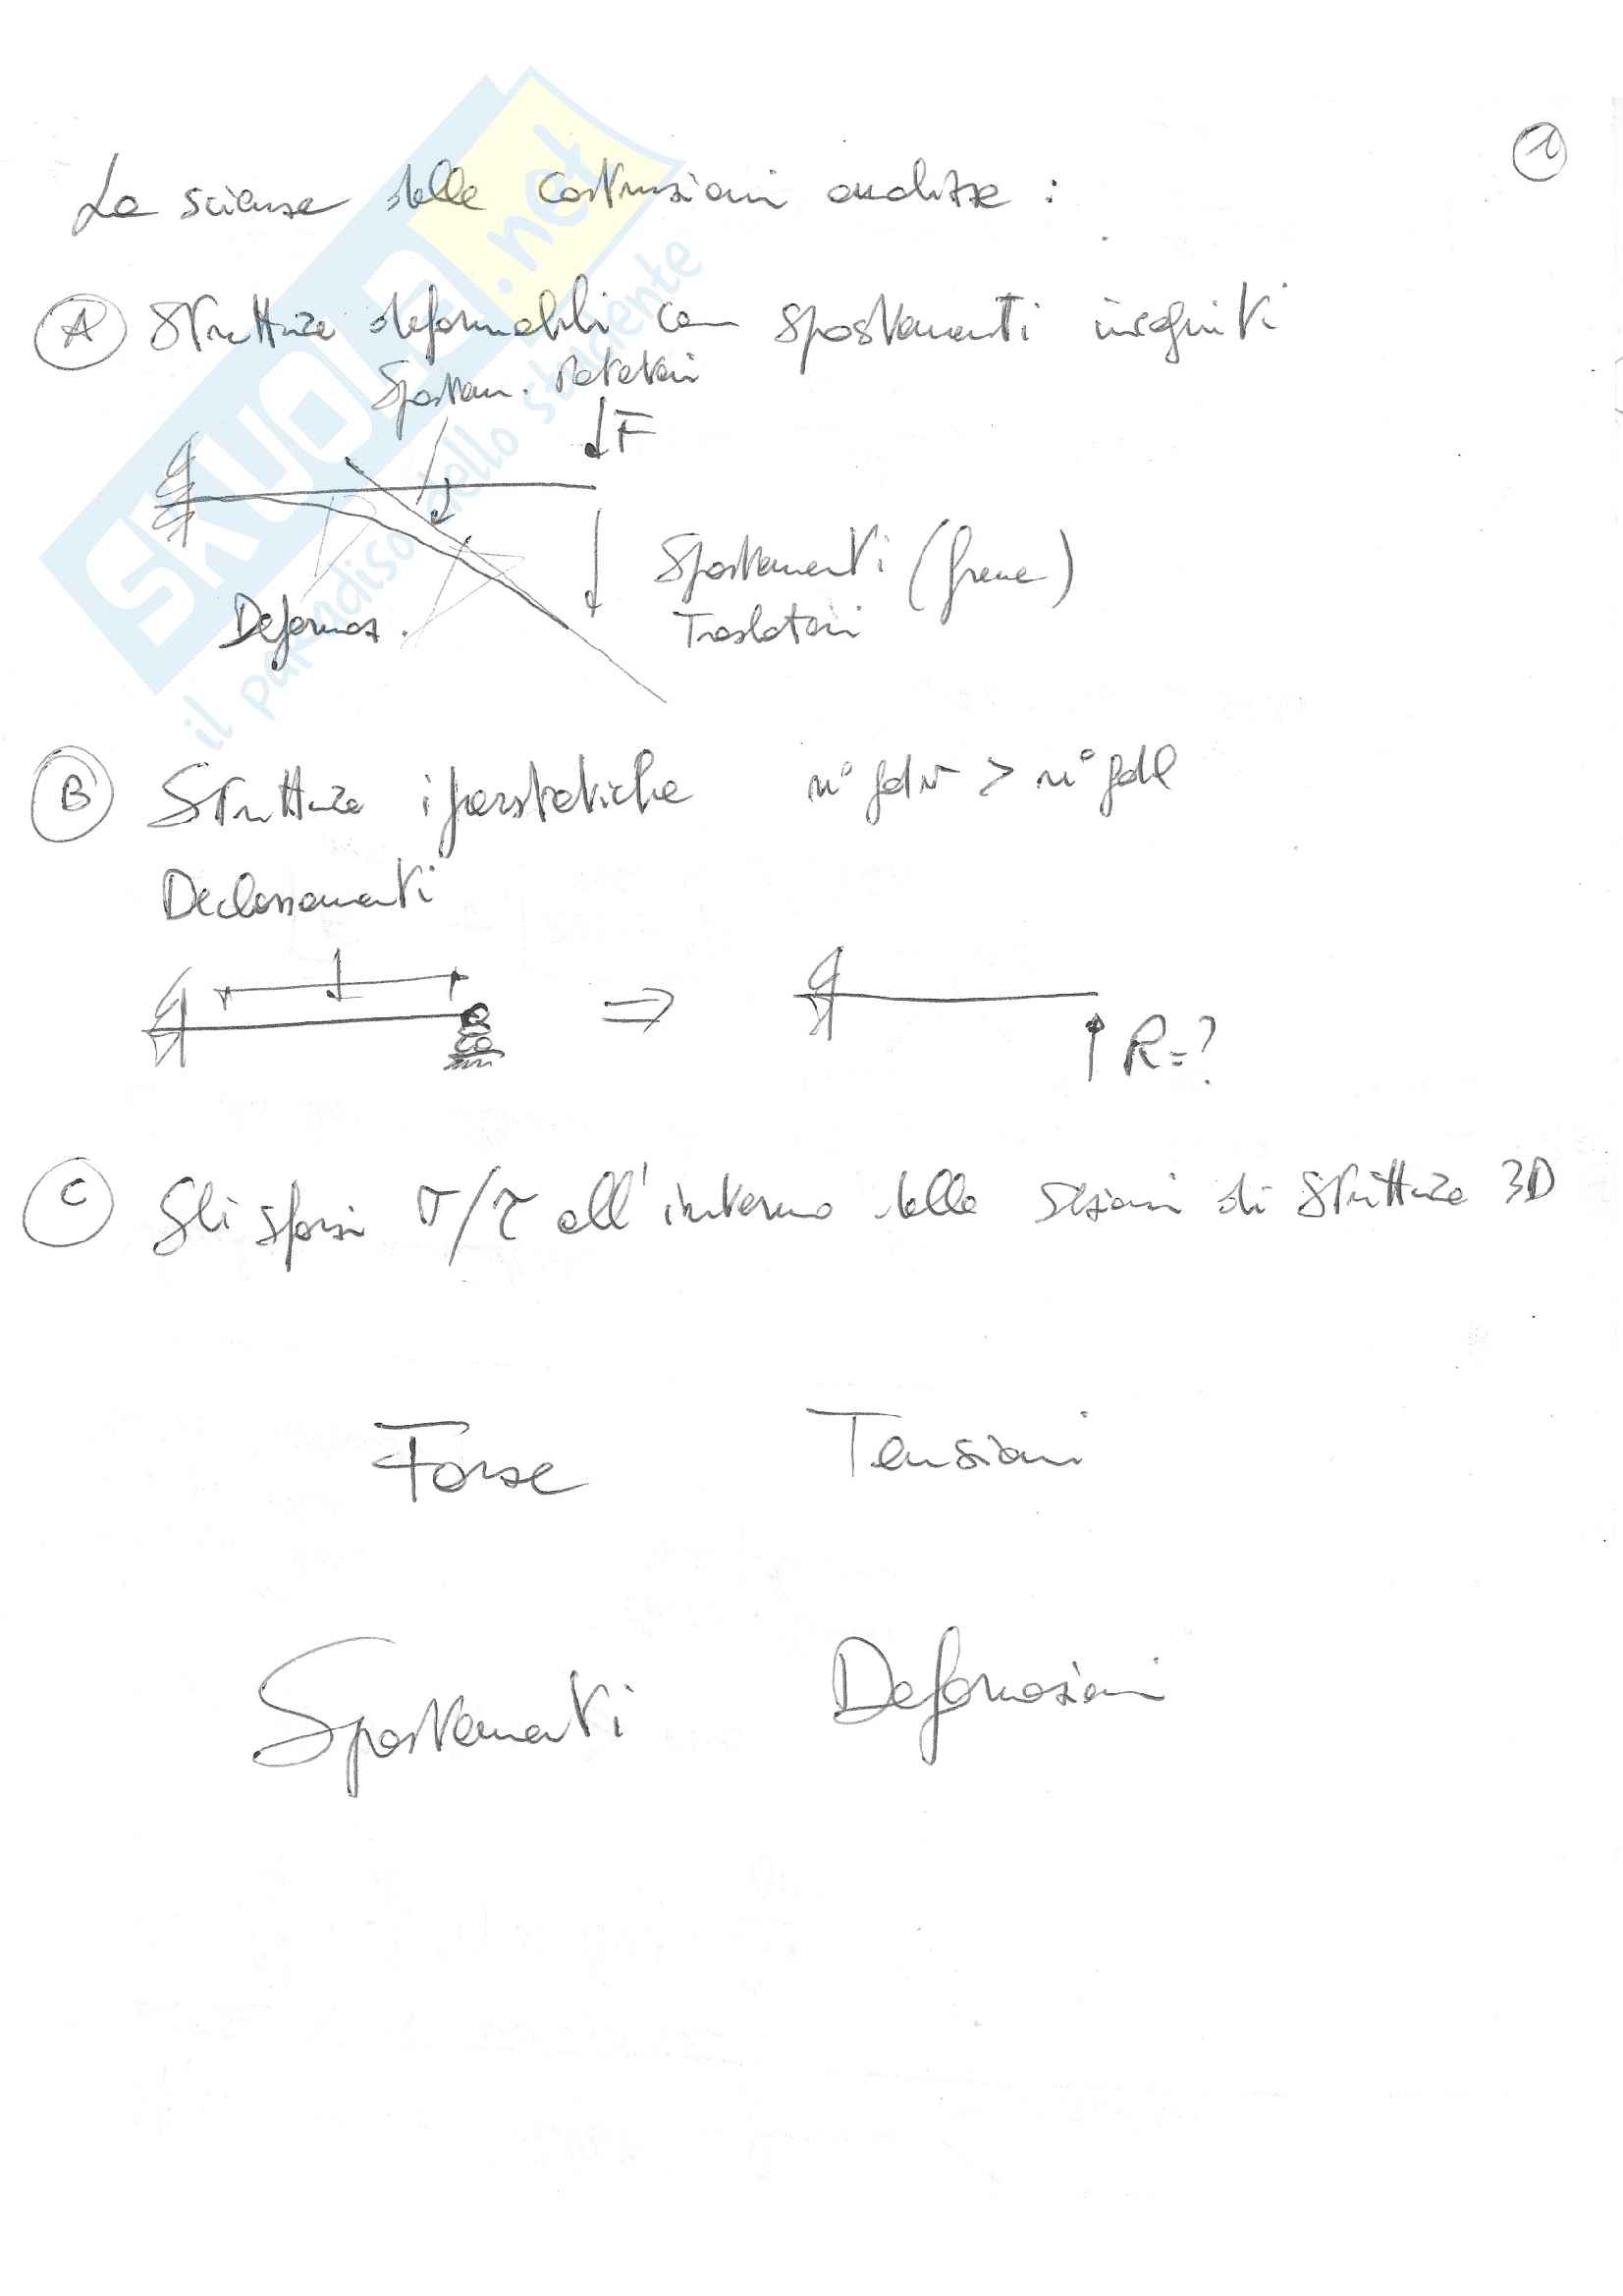 1
La scienza delle costruzioni analizza :
A Strutture deformabili con spostamenti incogniti
Spostam. Rotatori
F
Spostamenti (frecce)
Traslatori
Deformaz.
B Strutture iperstatiche n° gdv > n° gdl
Declassamenti
⇒ R=?
C Gli sforzi σ/τ all'interno delle sezioni di strutture 3D
Forze Tensioni
Spostamenti Deformazioni
SKUOLA.net
il paradiso dello studente